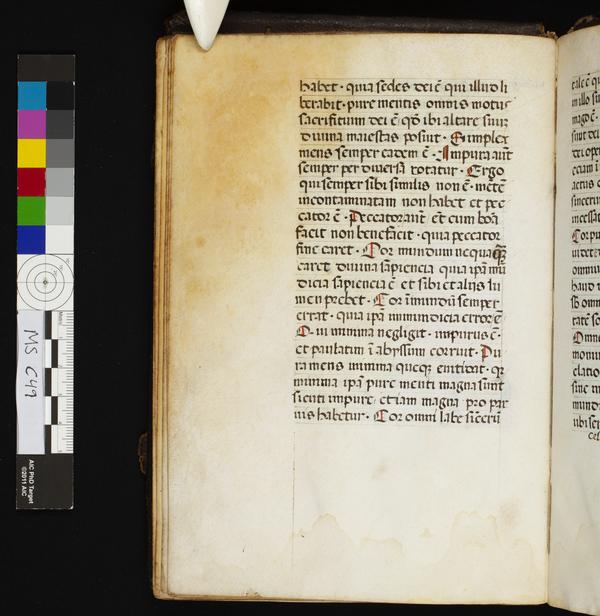 habet · quia sedes dei ē qui illud li
berabit · pure mentis omnis motus
sacrificium dei ē q̄ ibi altare suū
diuina maiestas posuit · Simplex
mens semper eadem ē · Impura aūt
semper per diuersa rotatur · Ergo
qui semper sibi similis non ē · mētē
incontaminatam non habet et pec
cator ē · Peccator aūt et cum bōa
facit non benefacit · quia peccator
fine caret · Cor mundum nequaq̄
caret diuina sapiencia quia ipā mū
dicia sapiencia ē et sibi et aliis lu
men prebet · Cor īmundū semper
errat · quia ipā inmundicia error ē
Qui minima negligit · impurus ē ·
et paulatim ī abyssum corruit · Pu
ra mens minima queq; euitat · q;
minima ipā pure menti magna sunt
sicuti impure etiam magna pro par
uis habetur · Cor omni labe sincerū
MS C49
AIC PhD Target
©2011 AIC